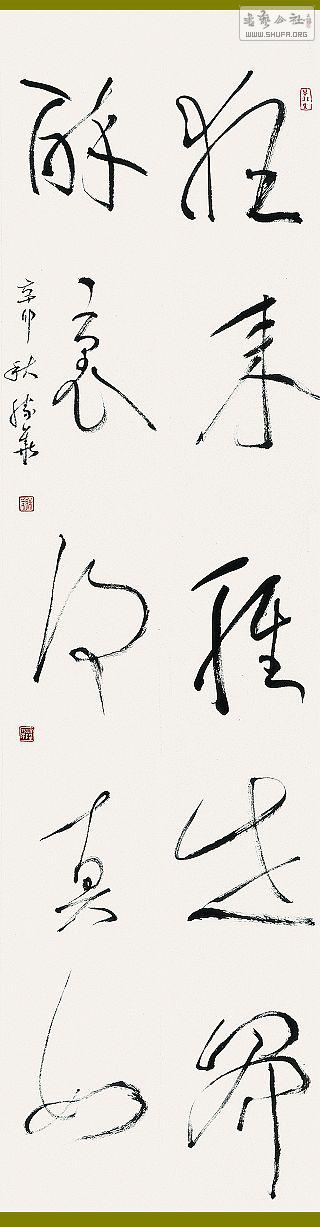 狂来轻世界
醉里得真如
辛卯秋 胜华
书艺公社
WWW.SHUFA.ORG